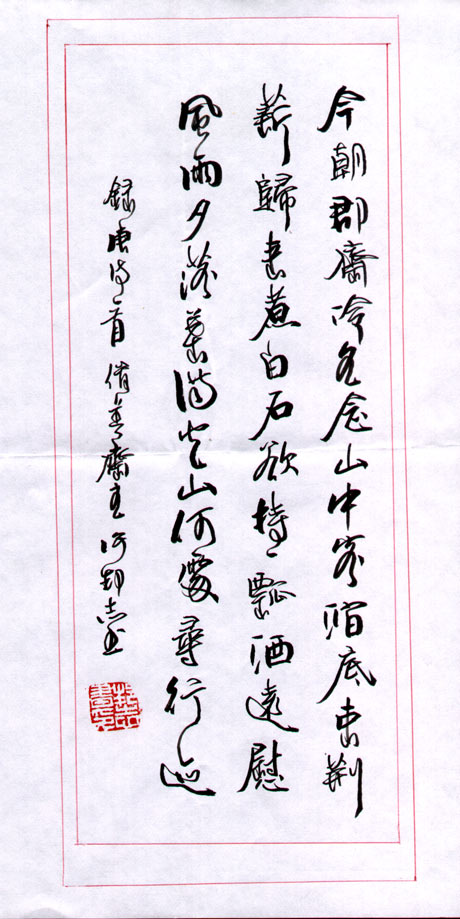 今朝郡齋冷忽念山中客澗底束荊
薪歸來煮白石欲持一瓢酒遠慰
風雨夕落葉滿空山何處尋行迹
錄唐詩一首 齋主